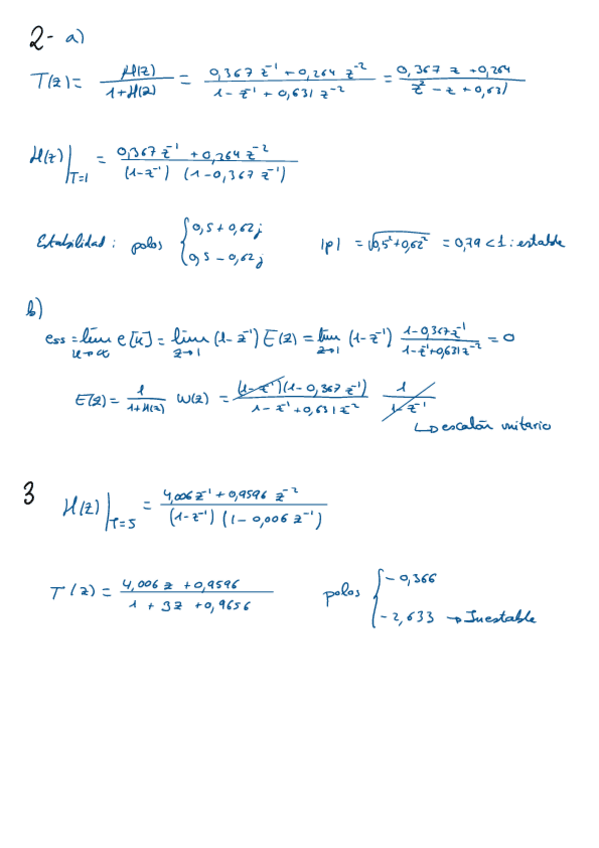 2- a)
T(z) = H(z) / 1+H(z) = 0,367 z⁻¹ + 0,264 z⁻² / 1 - z⁻¹ + 0,631 z⁻² = 0,367 z + 0,264 / z² - z + 0,631
H(z)|T=1 = 0,367 z⁻¹ + 0,264 z⁻² / (1-z⁻¹) (1-0,367 z⁻¹)
Estabilidad: polos { 0,5 + 0,62j
0,5 - 0,62j
|p| = √0,5²+0,62² = 0,79 < 1 : estable
b)
ess = lím k→∞ e[k] = lím z→1 (1-z⁻¹) E(z) = lím z→1 (1-z⁻¹) 1-0,367z⁻¹ / 1-z⁻¹+0,631z⁻² = 0
E(z) = 1 / 1+H(z) W(z) = (1-z⁻¹)(1-0,367 z⁻¹) / 1 - z⁻¹ + 0,631z⁻² 1 / 1-z⁻¹
↳ escalón unitario
3 H(z)|T=5 = 4,006 z⁻¹ + 0,9596 z⁻² / (1-z⁻¹) (1-0,006 z⁻¹)
T(z) = 4,006 z + 0,9596 / 1 + 3z + 0,9656 polos { -0,366
-2,633 → Inestable